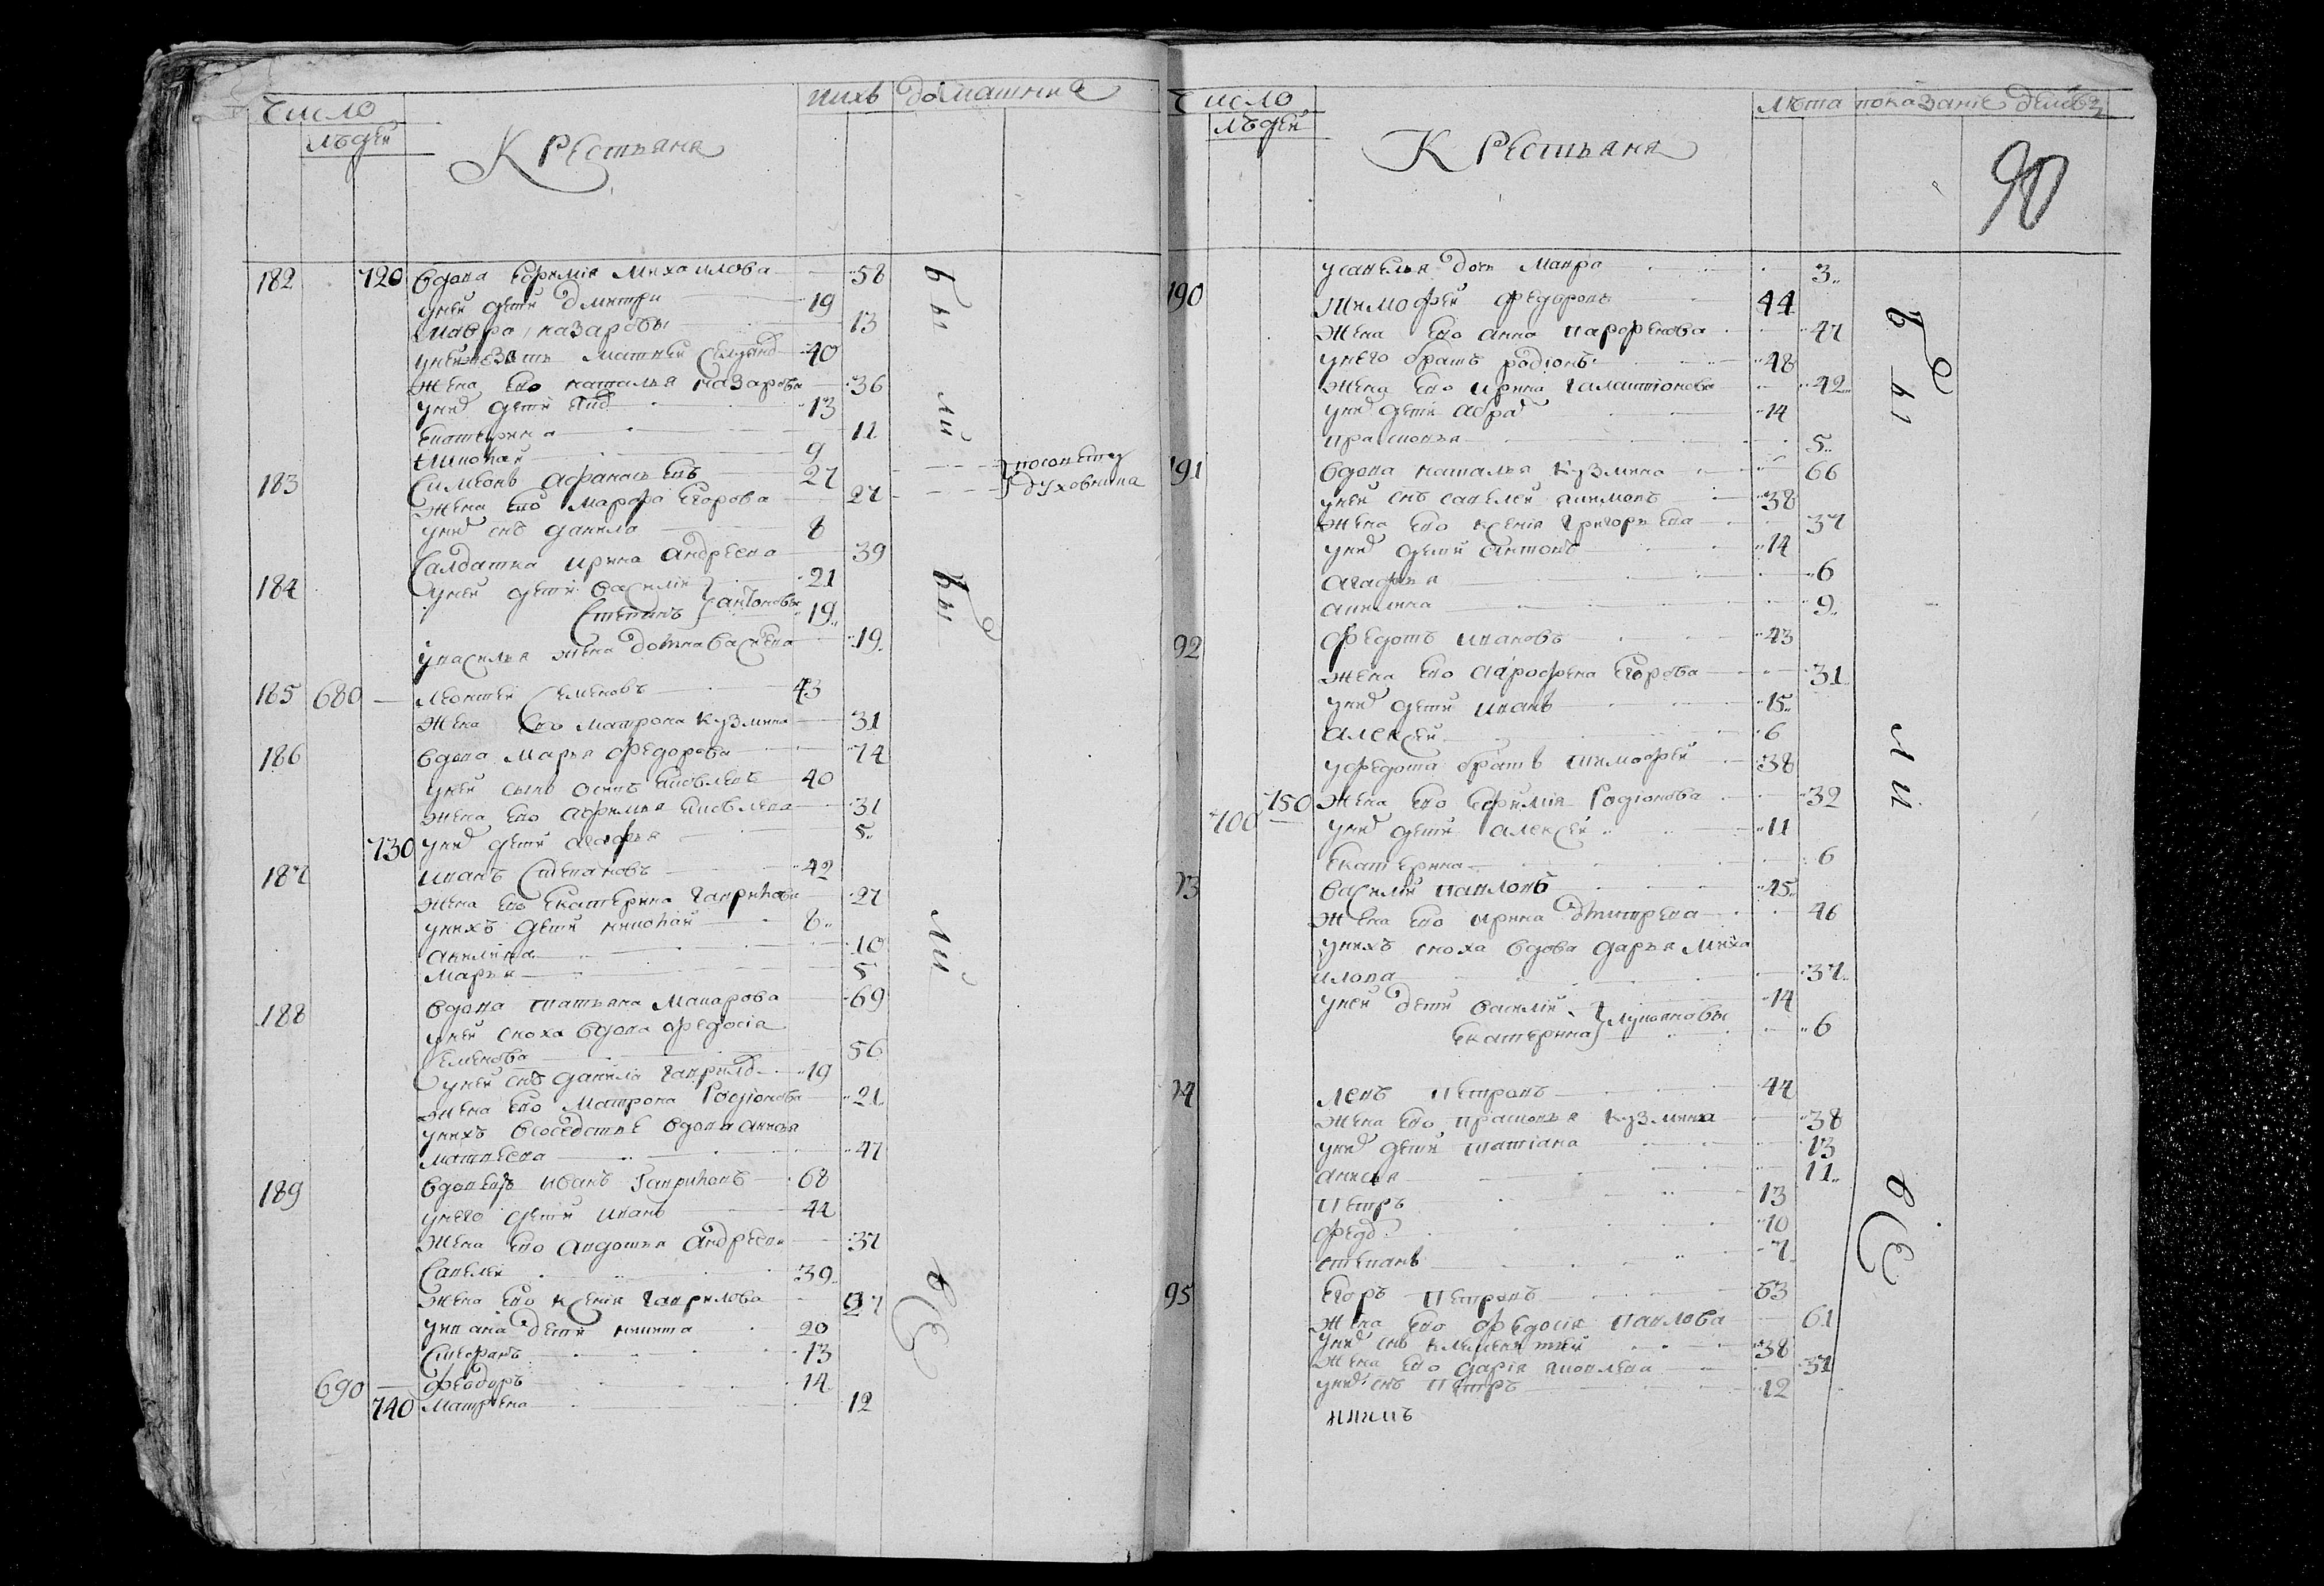 Число
людей
Крестьяне
ихъ домашние
182 720 вдова Ефимия Михаилова 58
у ней дети Дмитри 19
Мавра Назаровы 13
у ней зять Матвей 40
жена ево Наталья Назарова 36
у них дети 13
Екатерина 11
9
183 Симеонъ Афанасьевъ 27
жена ево Марфа Егорова 27
духовника
у них снъ Данило 8
Салдатка Ирина Андреева 39
184 у ней дети Василий 21
Степанъ Антоновы 19
у Василья жена Домна 19
185 680 Леонтей Семеновъ 43
жена ево Матрона Кузмина 31
186 вдова Марья Федорова 74
у ней сынъ Осипъ Яковлевъ 40
жена ево Афимья Яковлева 31
730 у них дети Агафья 5
187 Иванъ Степановъ 42
жена ево Екатерина 27
у нихъ дети 8
Акилина 10
Марья 5
188 вдова Татьяна Макарова 69
у ней сноха вдова Федосия
Семенова 56
у ней снъ Данила 19
жена ево Матрона Родионова 21
у нихъ в соседстве вдова Анисья
Матвеева 47
189 вдовецъ Иванъ 68
у него дети Иванъ 44
жена ево Авдотья Андреева 37
Савелей 39
жена ево Ксения Гаврилова 27
у Ивана дети Никита 20
Стефанъ 13
690 Феодоръ 14
740 Матрена 12
были
были
все
Число
людей
Крестьяне
лета показание
90
у Савелья дочь Мавра 3
190 Тимофей Федоровъ 44
жена ево Анна Парфенова 47
у него братъ Родионъ 48
жена ево Ирина Галактионова 42
у них дети 14
Прасковья 5
191 вдова Наталья Кузмина 66
у ней снъ Савелей 38
жена ево Ксения Григорьева 37
у них дети Антонъ 14
Агафья 6
Акилина 9
92 Федотъ Ивановъ 43
жена ево Егорова 31
у них дети Иванъ 15
Алексей 6
у Федота братъ Тимофей 38
750 жена ево Ефимия Родионова 32
700 у них дети Алексей 11
Екатерина 6
93 Василий Павловъ 45
жена ево Ирина Дмитрева 46
у нихъ сноха вдова Дарья Миха
илова 37
у ней дети Василий 14
Екатерина Лукьяновы 6
94 Левъ Петровъ 44
жена ево Прасковья Кузмина 38
у них дети Татиана 13
Анисья 11
Петръ 13
10
Степанъ 7
95 Егоръ Петровъ 63
жена ево Федосия Павлова 61
у них снъ Клементей 38
жена ево Дария Яковлева 31
у них снъ Петръ 12
были
все